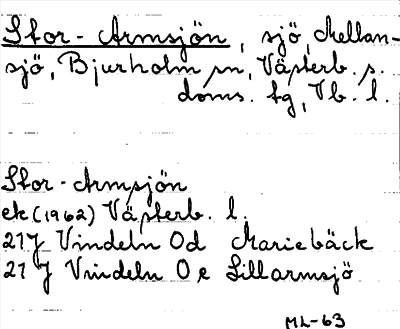 Stor-Armsjön, sjö, Mellan-
sjö, Bjurholm sn, Västerb. s.
doms. tg, Vb. l.
Stor-Armsjön
ek (1962) Västerb. l.
21J Vindeln 0d Mariebäck
21J Vindeln 0e Lillarmsjö
ML-63